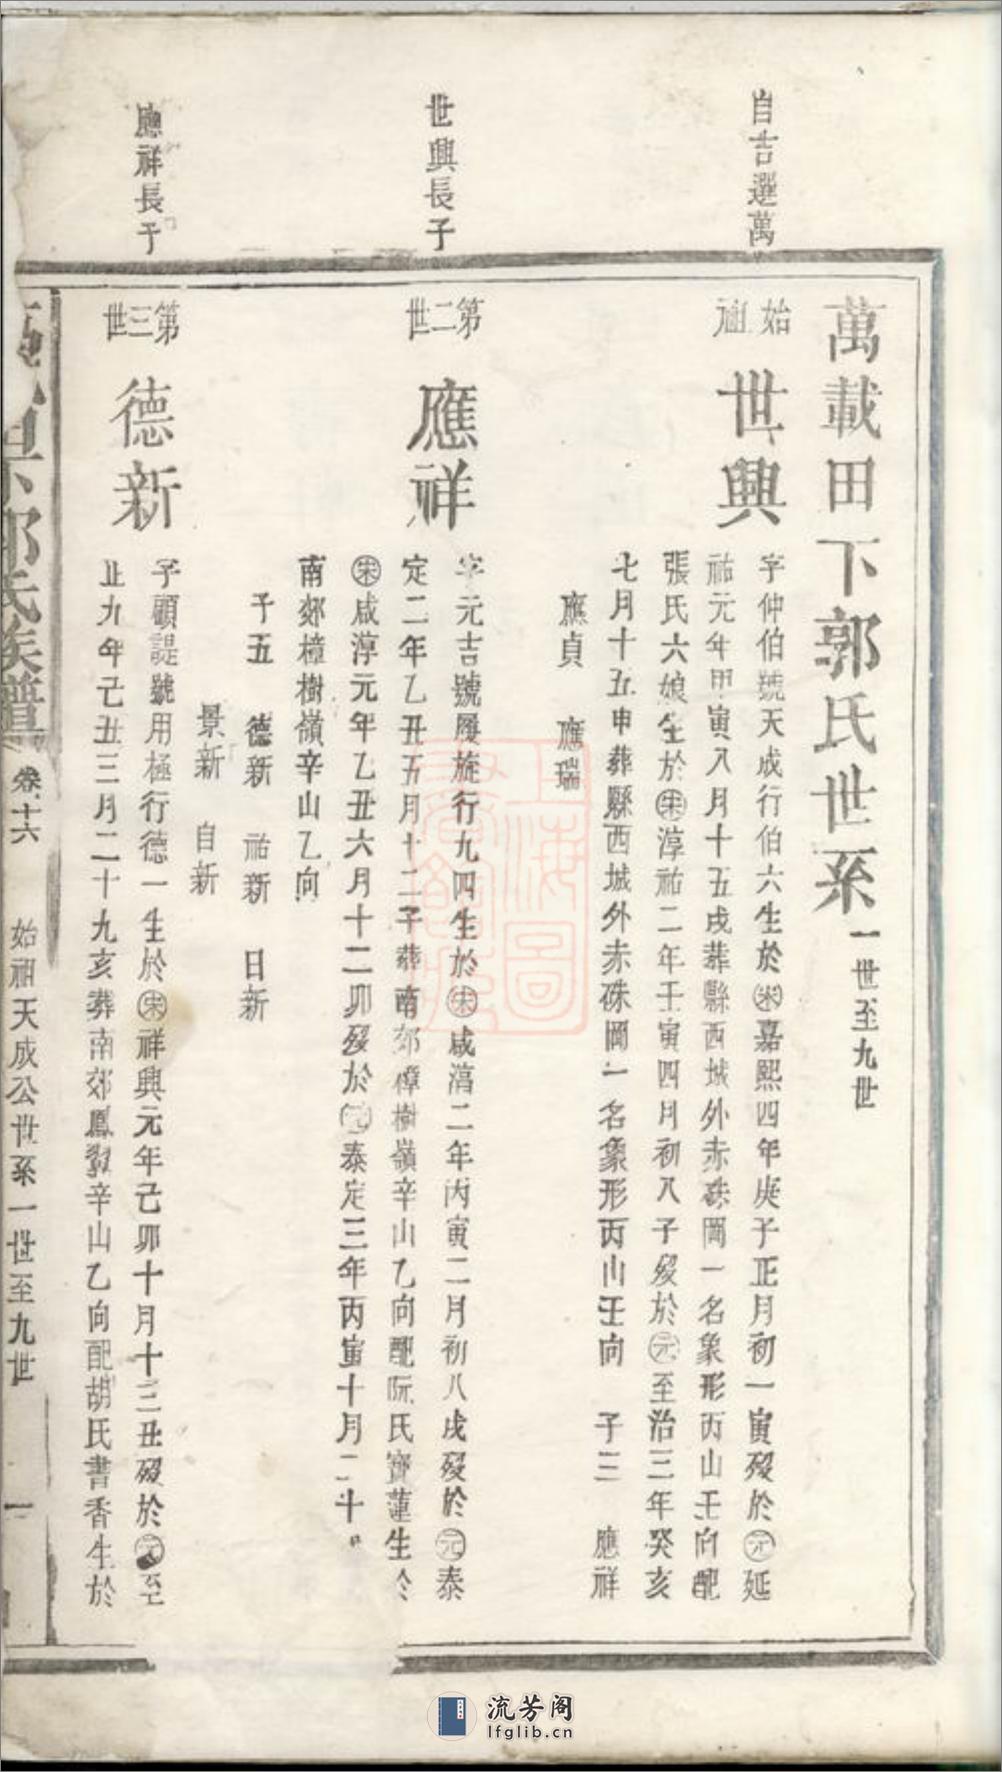 萬載田下郭氏世系 一世至九世
自吉選萬
始祖
世興
字仲伯號天成行伯六生於宋嘉熙四年庚子正月初一寅歿於元延
祐元年甲寅八月十五戌葬縣西城外赤硃岡一名象形丙山壬向配
張氏六娘生於宋淳祐二年壬寅四月初八子歿於元至治三年癸亥
七月十五申葬縣西城外赤硃岡一名象形丙山壬向 子三 應祥
應貞 應瑞
世興長子
第二世
應祥
字元吉號履旋行九四生於宋咸淳二年丙寅二月初八戌歿於元泰
定二年乙丑五月十二子葬南郊樟樹嶺辛山乙向配阮氏寶蓮生於
宋咸淳元年乙丑六月十二卯歿於元泰定三年丙寅十月二十
南郊樟樹嶺辛山乙向
子五 德新 祐新 日新
景新 自新
應祥長子
第三世
德新
子顧諟號用極行德一生於宋祥興元年己卯十月十三丑歿於元至
正九年己丑三月二十九亥葬南郊鳳形辛山乙向配胡氏書香生於
郭氏族譜 卷十六 始祖天成公世系一世至九世 一
上海圖書館藏
流芳阁
lfglib.cn